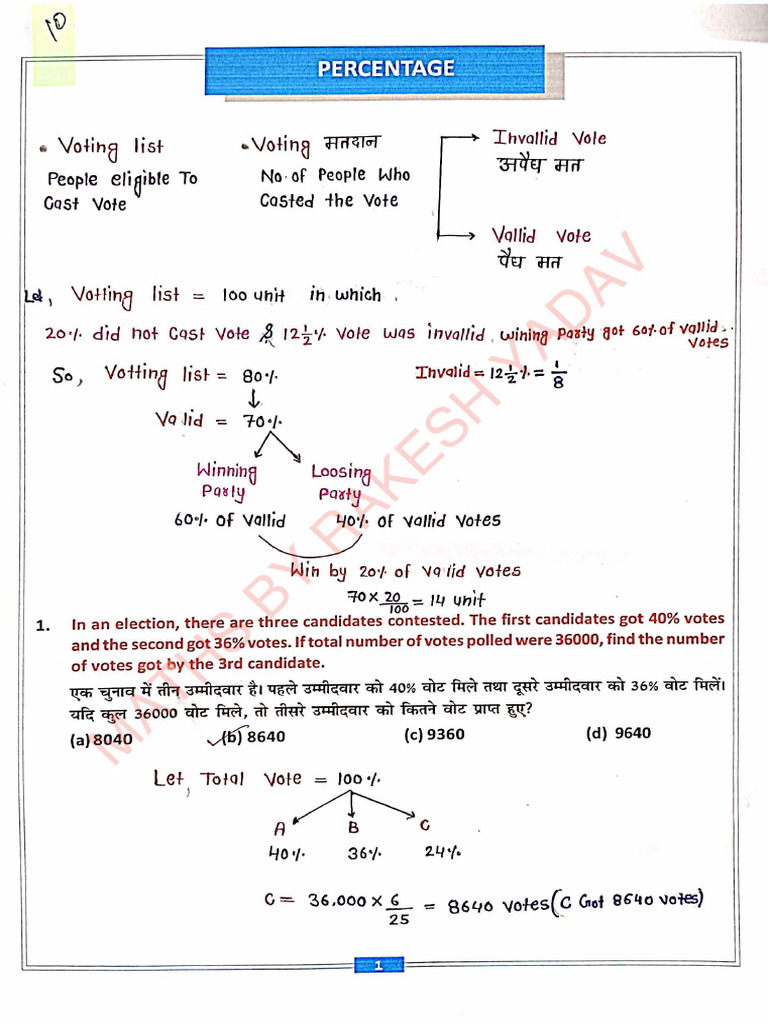 10
PERCENTAGE
• Voting list
People eligible To
Cast Vote
• Voting मतदान
No. of People Who
Casted the Vote
Invallid Vote
अवैध मत
Vallid Vote
वैध मत
Let, Votting list = 100 unit in which,
20% did not Cast Vote & 12 1/2 % Vote was invallid, wining Party got 60% of vallid
votes
So, Votting list = 80%
Invalid = 12 1/2 % = 1/8
Valid = 70%
Winning
Party
Loosing
Party
60% of Vallid
40% of Vallid Votes
Win by 20% of Valid Votes
70 × 20/100 = 14 unit
1. In an election, there are three candidates contested. The first candidates got 40% votes
and the second got 36% votes. If total number of votes polled were 36000, find the number
of votes got by the 3rd candidate.
एक चुनाव में तीन उम्मीदवार है। पहले उम्मीदवार को 40% वोट मिले तथा दूसरे उम्मीदवार को 36% वोट मिलें।
यदि कुल 36000 वोट मिले, तो तीसरे उम्मीदवार को कितने वोट प्राप्त हुए?
(a) 8040 (b) 8640 (c) 9360 (d) 9640
Let, Total Vote = 100%
A B C
40% 36% 24%
C = 36,000 × 6/25 = 8640 Votes (C Got 8640 votes)
1
MATHS BY RAKESH YADAV